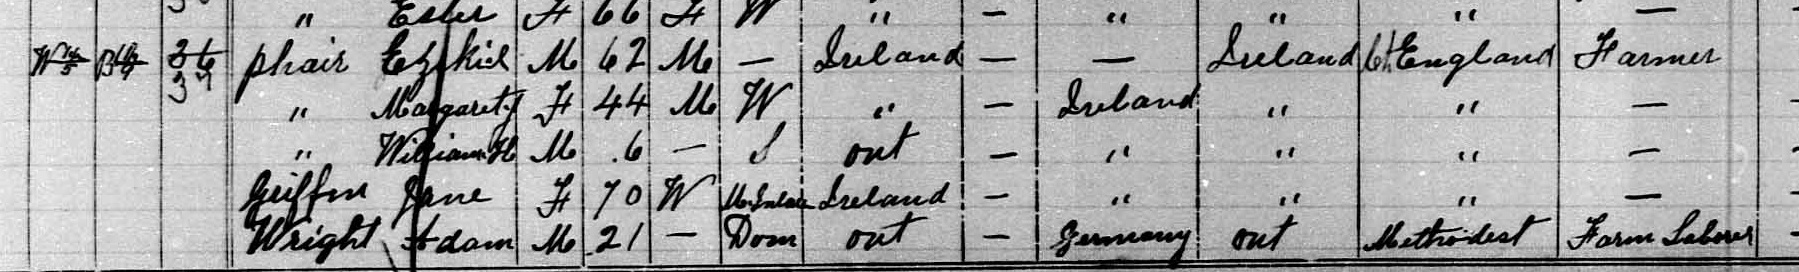 " Ester F 66 F W " — " " " —
W 5 B 9 36 phair Ezekiel M 62 M — Ireland — — Ireland Ch England Farmer
37 " Margaret J F 44 M W " — Ireland " " —
" William H M .6 — S ont — " " " —
Griffin Jane F 70 W Ireland — " " " —
Wright Adam M 21 — Dom ont — Germany ont Methodist Farm Laborer —